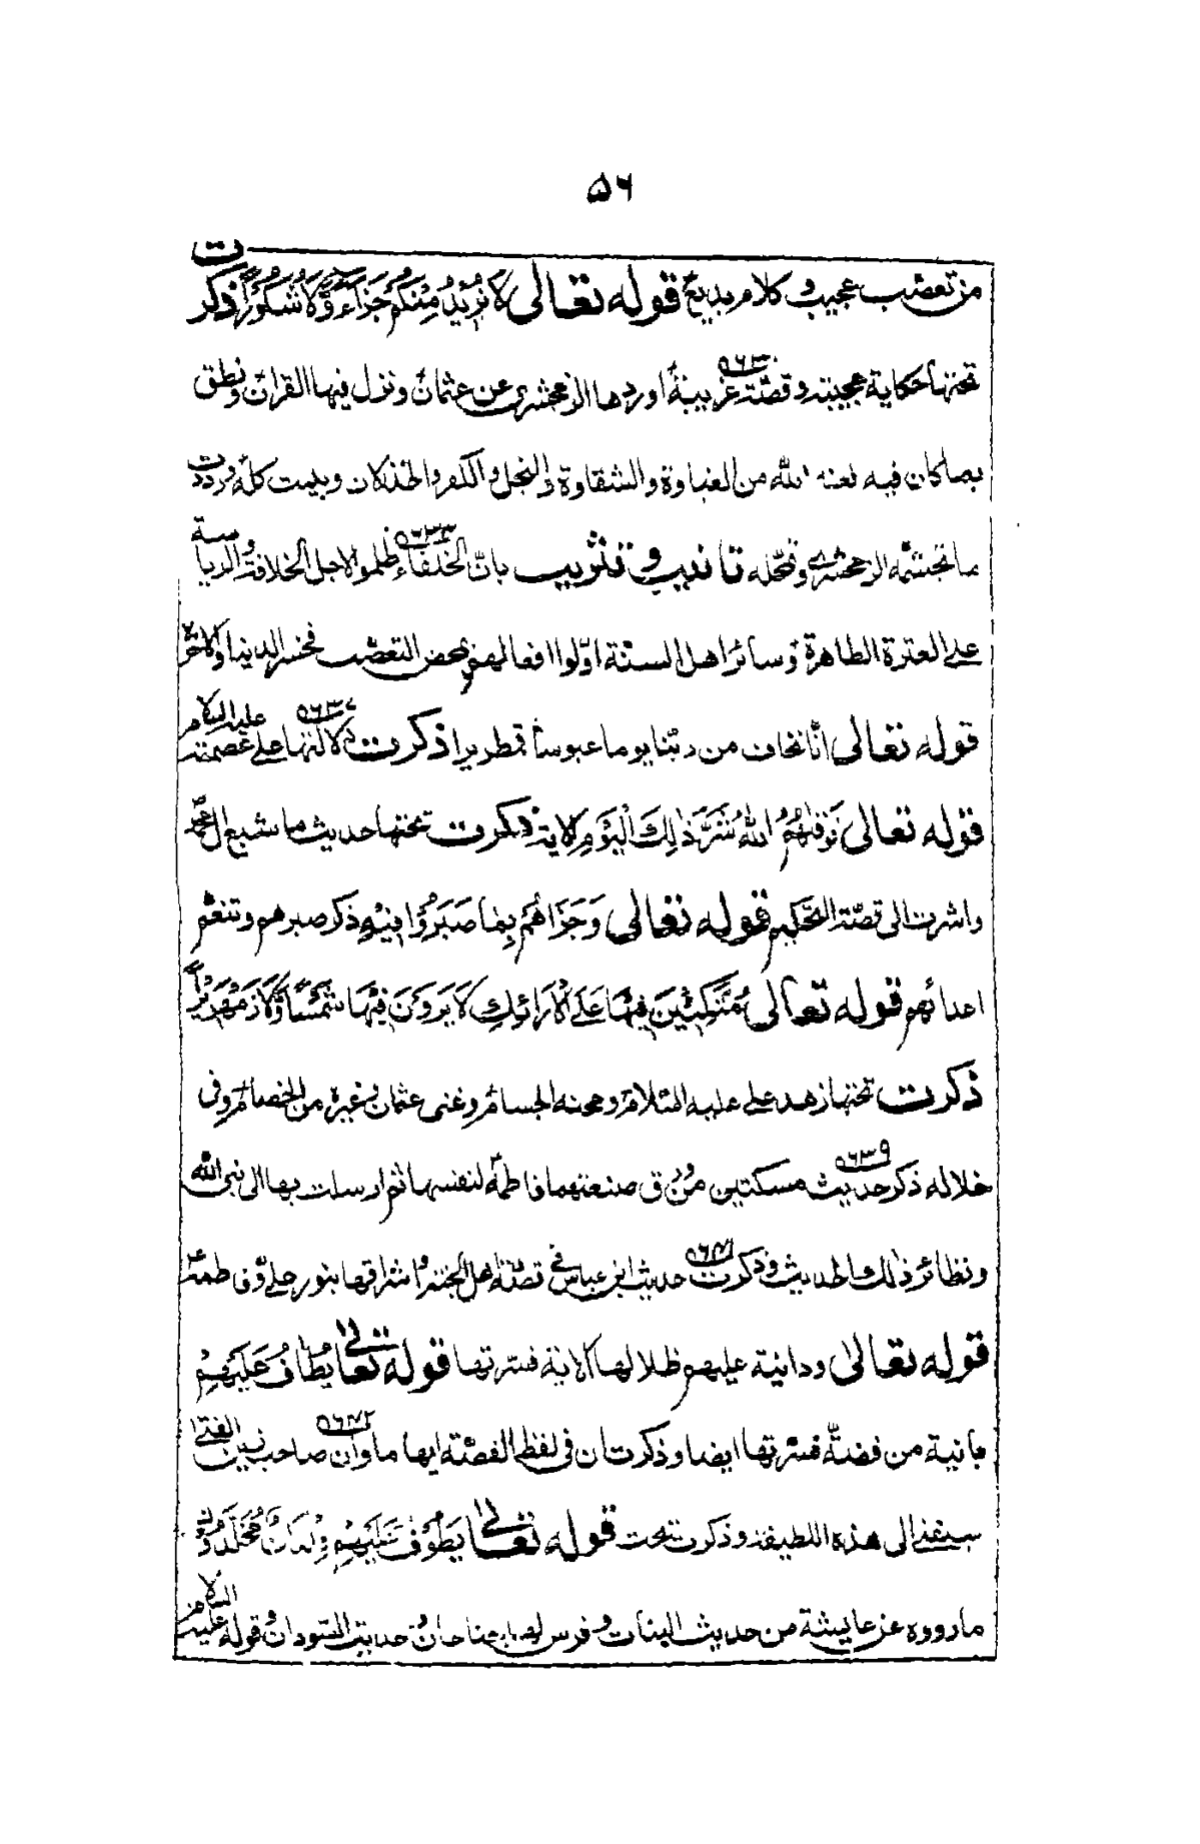 ٥٦
من تعصب عجيب و كلام بديع قوله تعالى لَا نُرِيْدُ مِنْكُمْ جَزَآءً وَّلَا شُكُوْرًا ذكرت
تحتها حكاية عجيبة و قصّة غريبة اوردها الزمخشرى عن عثمان و نزل فيها القران و نطق
٥٦٣٠
بما كان فيه لعنه الله من الغباوة والشقاوة والبخل والكفر والخذلان و بينت كله ورددت
ما تجشمه الزمخشرى و تمحّله تانيب و تثريب بانّ الخلفاء ظلموا لاجل الخلافة والرياسة
٥٦٣٣
على العترة الطاهرة و سائر اهل السنة اوّلوا افعالهم بمحض التعصّب فخسر الدنيا والاخرة
قوله تعالى انّا نخاف من ربّنا يوما عبوسا قمطريرا ذكرت دلالتها على عصمته عليه السلام
٥٦٣٧
قوله تعالى فَوَقٰىهُمُ اللهُ شَرَّ ذٰلِكَ الْيَوْمِ الاية ذكرت تحتها حديث ما شبع ال محمّد
واشرت الى قصّة التحكيم قوله تعالى وَجَزَاهُمْ بِمَا صَبَرُوْا فيه ذكر صبرهم و تنعّم
اعدائهم قوله تعالى مُتَّكِئِيْنَ فِيْهَا عَلَى الْاَرَائِكِ لَا يَرَوْنَ فِيْهَا شَمْسًا وَّلَا زَمْهَرِيْرًا
ذكرت تحتها زهد على عليه السلام و محنه الجسام و غنى عثمان و غيره من الخصام و فى
خلاله ذكر حديث مسكتين من ورق صنعتهما فاطمة لنفسها ثم ارسلت بها الى نبى الله
٥٦٣٩
و نظائر ذلك الحديث و ذكرت حديث ابن عباس فى قصّة اهل الجنة و اشراقها بنور على و فاطمة
٥٦٧١
قوله تعالى ودانية عليهم ظلالها الاية فسّرتها قوله تعالى يُطَافُ عَلَيْهِمْ
بانية من فضّة فسّرتها ايضا و ذكرت ان فى لفظ الفضّة ايهاما وان صاحب الفتى
٥٦٧٢
سبقنى الى هذه اللطيفة و ذكرت تحت قوله تعالى يَطُوْفُ عَلَيْهِمْ وِلْدَانٌ مُّخَلَّدُوْنَ
ما رووه عن عايشة من حديث البنات و فرس لها جناحان و حديث السّودان و قوله عليه السلام